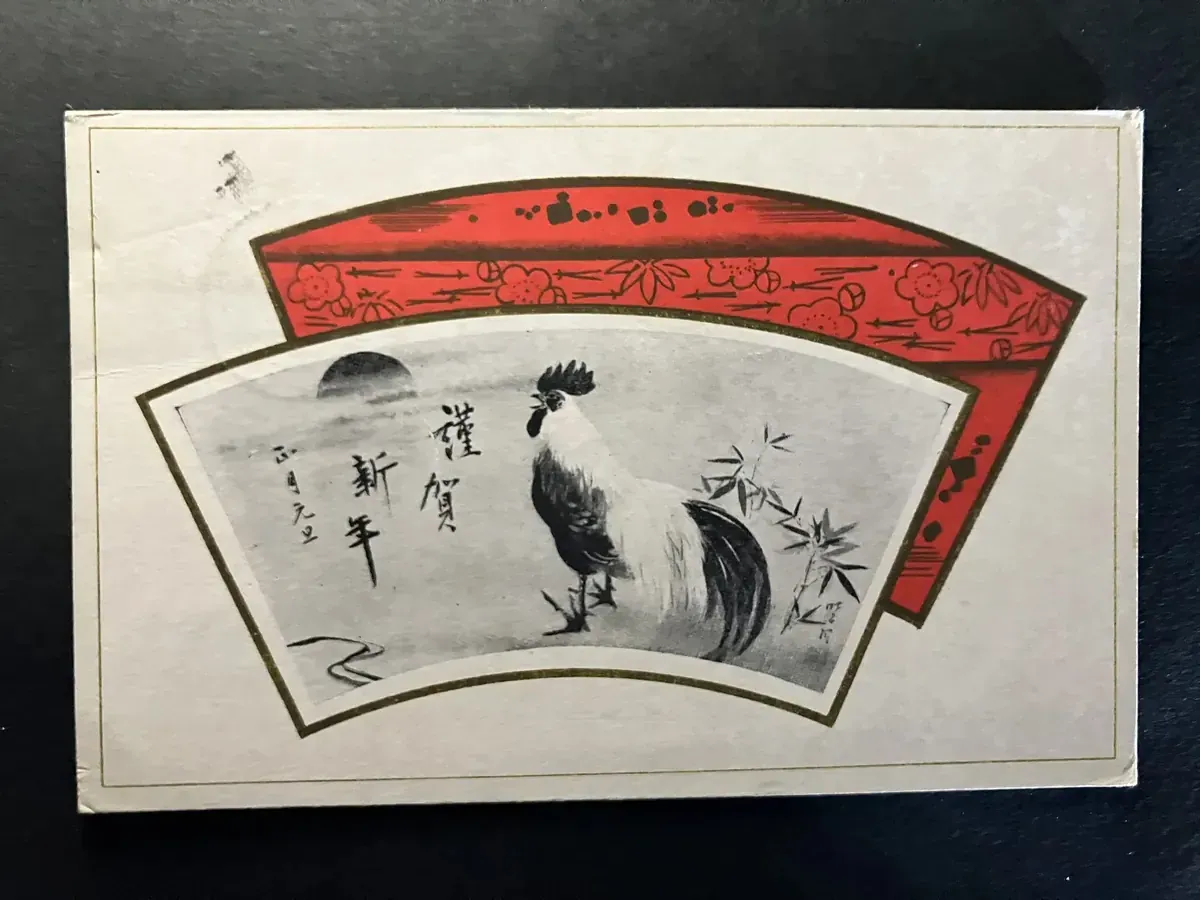 謹賀
新年
正月元旦